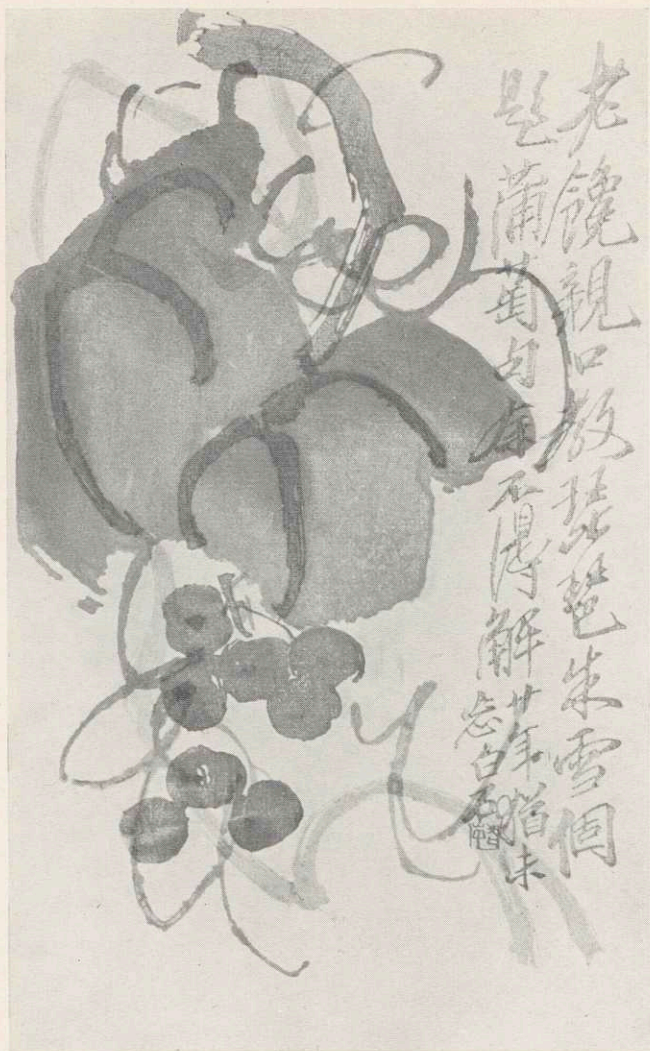 老饞親口教琵琶朱雪個
題蒲萄句存不得解廿年猶未
忘白石